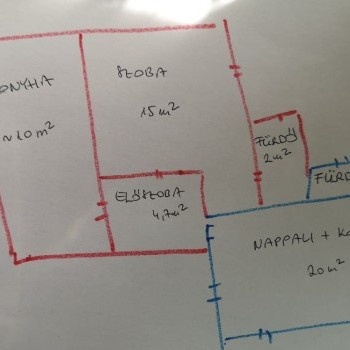 ONYHA
~10 m²
SZOBA
15 m²
FÜRDŐ
2 m²
ELŐSZOBA
4,7 m²
FÜRD
NAPPALI + KO
20 m²